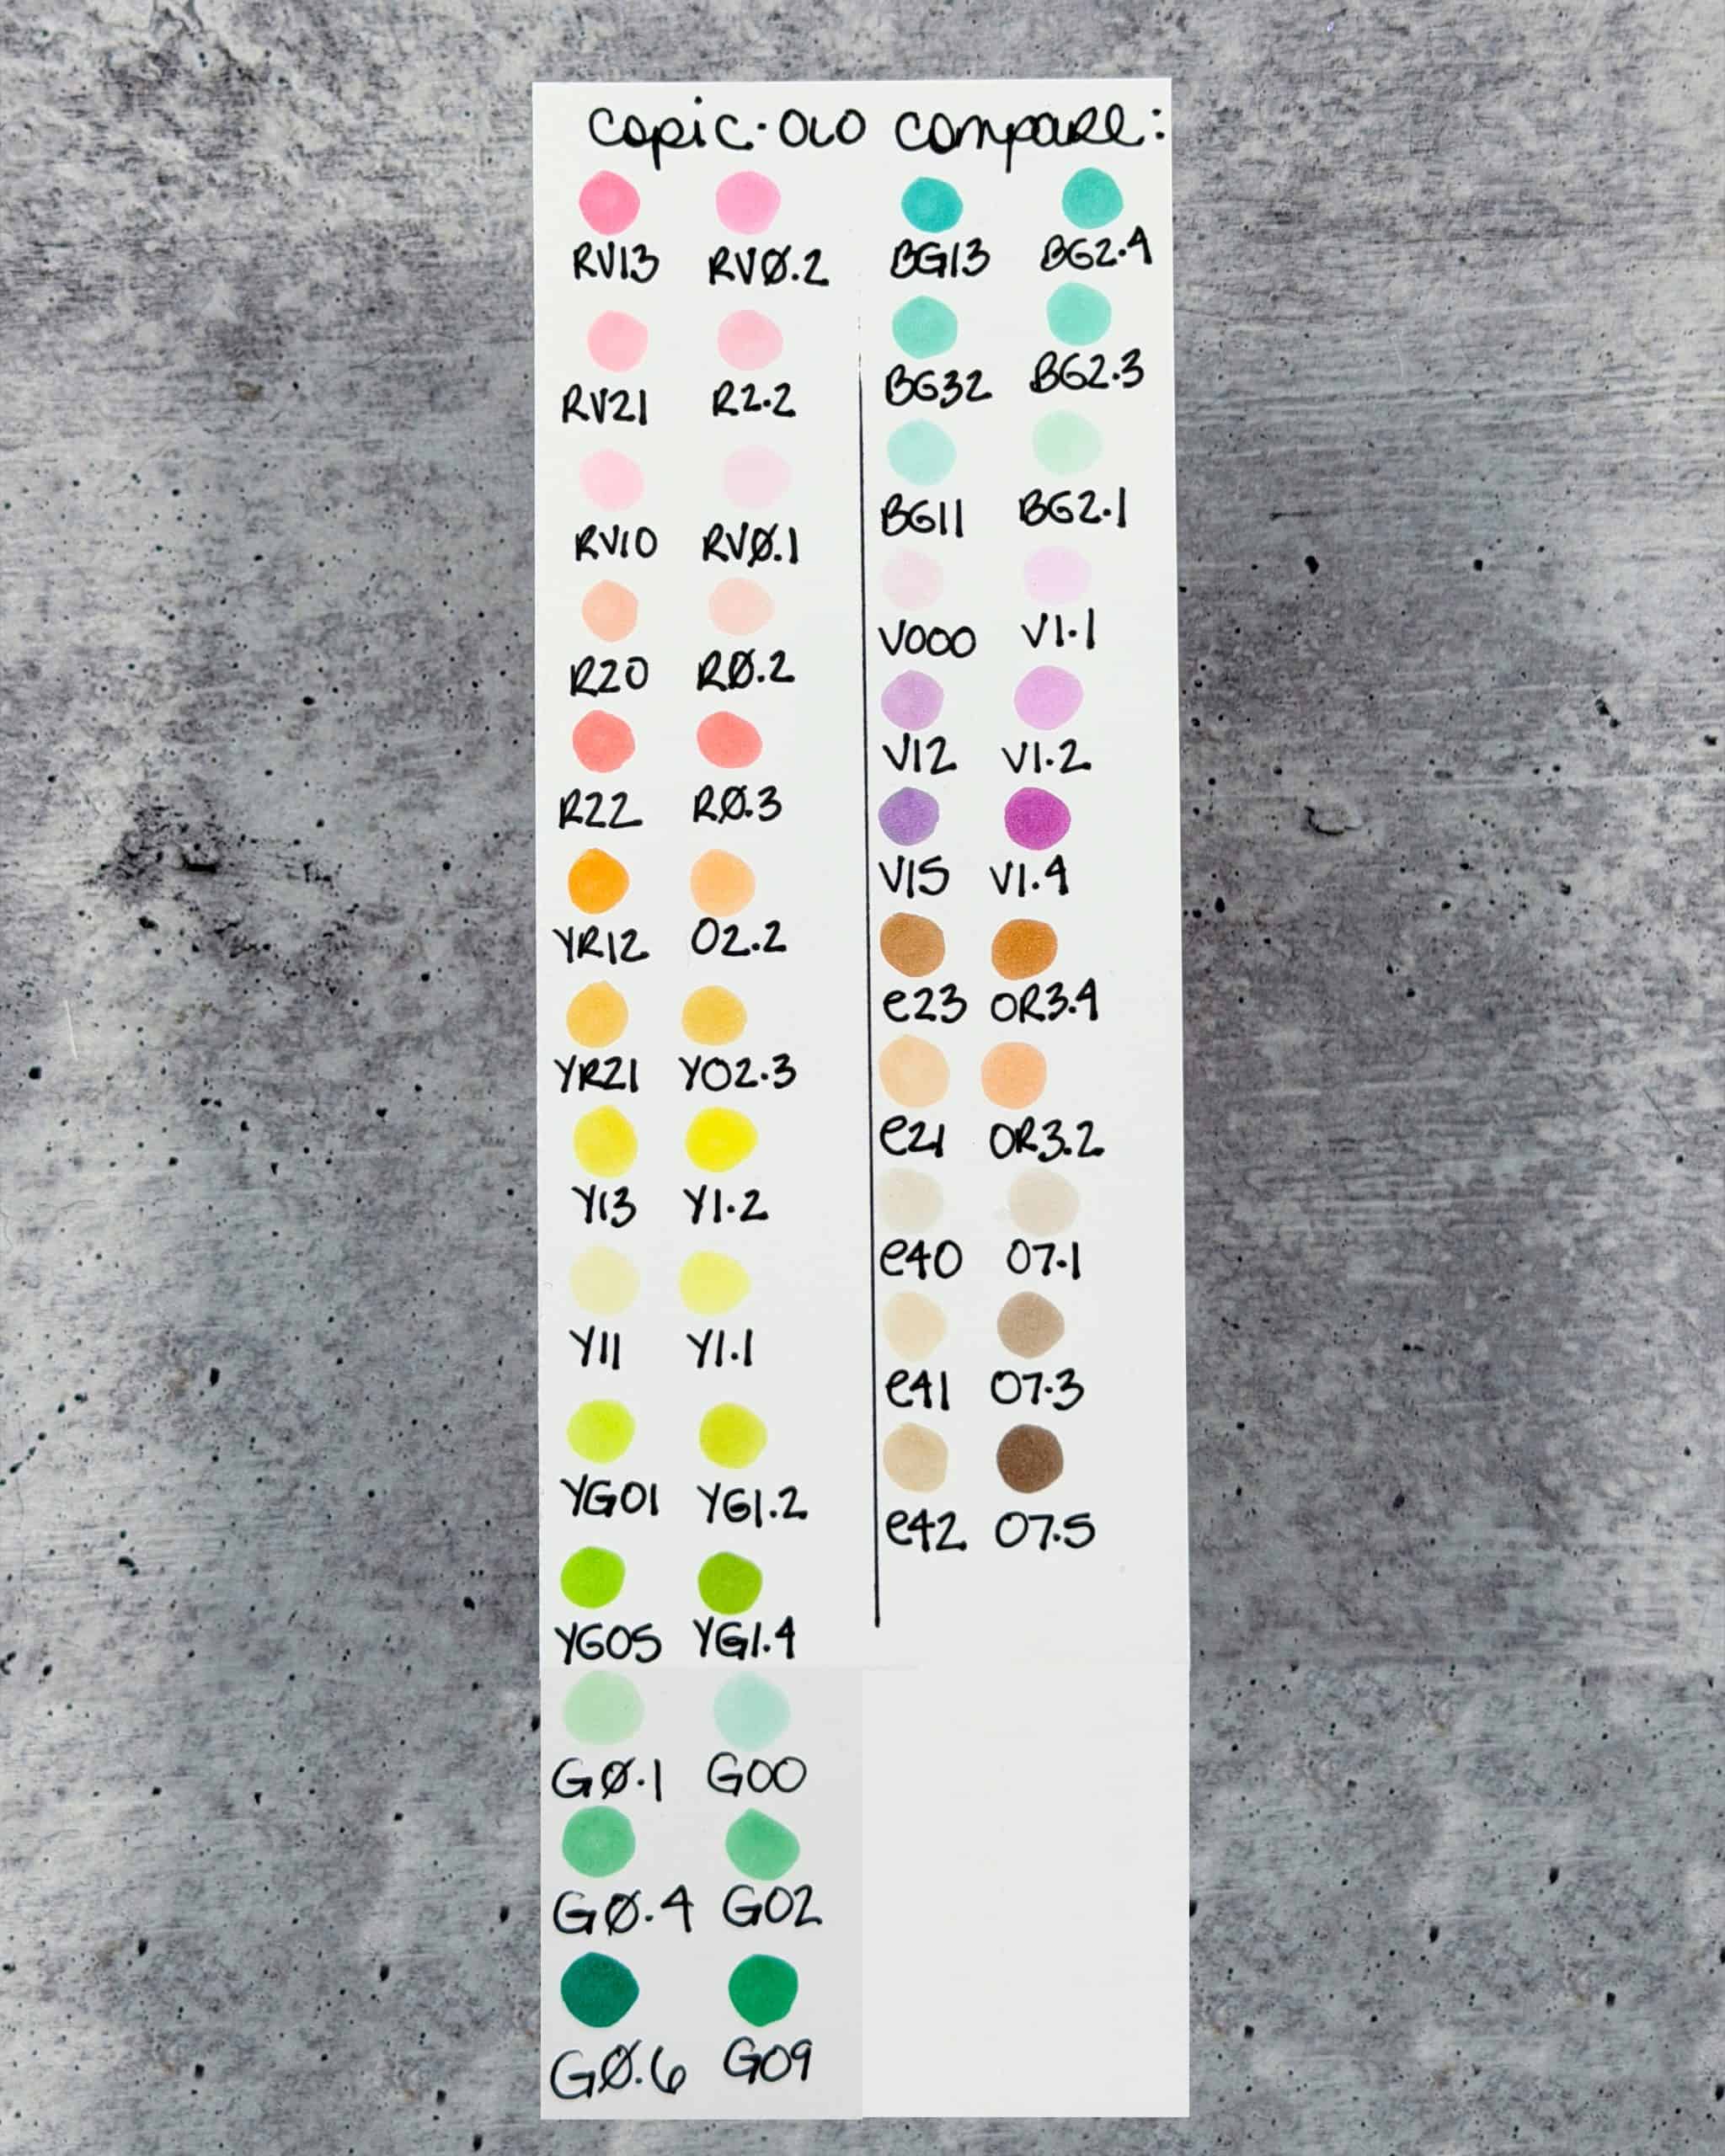 copic·OLO compare:
RV13 RVØ.2
RV21 R2.2
RV10 RVØ.1
R20 RØ.2
R22 RØ.3
YR12 O2.2
YR21 YO2.3
Y13 Y1.2
Y11 Y1.1
YG01 YG1.2
YG05 YG1.4
GØ.1 G00
GØ.4 G02
GØ.6 G09
BG13 BG2.4
BG32 BG2.3
BG11 BG2.1
V000 V1.1
V12 V1.2
V15 V1.4
e23 OR3.4
e21 OR3.2
e40 O7.1
e41 O7.3
e42 O7.5